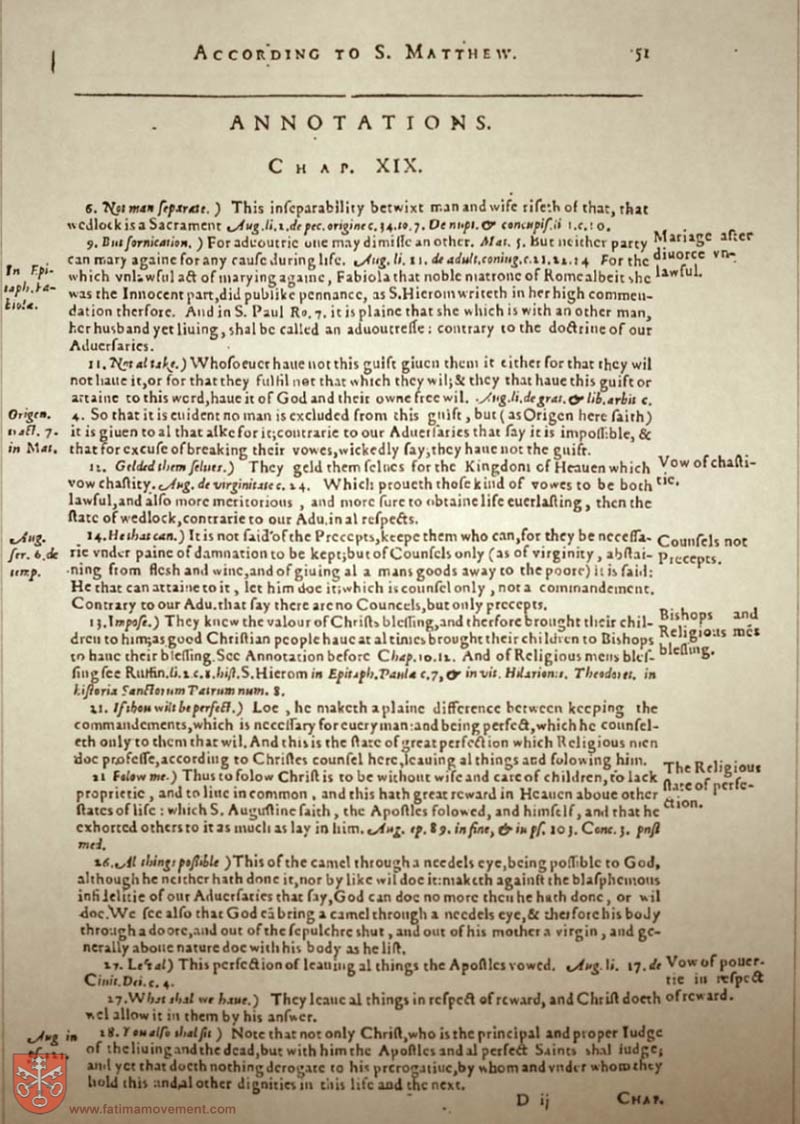 ACCORDING TO S. MATTHEW. 51
ANNOTATIONS.
CHAP. XIX.
6. Not man ſeparate.) This inſeparability betwixt man and wife riſeth of that, that
wedlock is a Sacrament Aug. li. 2. de pec. origine c. 34. to. 7. De nupt. & concupiſ. li 1. c. 10.
9. But fornication.) For aduoutrie one may dimiſſe an other. Mat. 5. But neither party
can mary againe for any cauſe during life. Aug. li. 11. de adult. coniug. c. 21. 22. 24 For the
which vnlawful act of marying againe, Fabiola that noble matrone of Rome albeit ſhe
was the Innocent part, did publike pennance, as S. Hierom writeth in her high commen-
dation therfore. And in S. Paul Ro. 7. it is plaine that ſhe which is with an other man,
her husband yet liuing, shal be called an aduoutreſſe: contrary to the doctrine of our
Aduerſaries.
Mariage after
diuorce vn-
lawful.
In Epi-
taph. Fa-
biolæ.
11. Not al take.) Whoſoeuer haue not this guift giuen them it either for that they wil
not haue it, or for that they fulfil not that which they wil; & they that haue this guift or
attaine to this word, haue it of God and their owne free wil. Aug. li. de grat. & lib. arbit c.
4. So that it is euident no man is excluded from this guift, but (as Origen here ſaith)
it is giuen to al that aſke for it; contrarie to our Aduerſaries that ſay it is impoſſible, &
that for excuſe of breaking their vowes, wickedly ſay, they haue not the guift.
Origen.
tract. 7.
in Mat.
12. Gelded them ſelues.) They geld them ſelues for the Kingdom of Heauen which
vow chaſtity. Aug. de virginitate c. 24. Which proueth thoſe kind of vowes to be both
lawful, and alſo more meritorious, and more ſure to obtaine life euerlaſting, then the
ſtate of wedlock, contrarie to our Adu. in al reſpects.
Vow of chaſti-
tie.
14. He that can.) It is not ſaid of the Precepts, keepe them who can, for they be neceſſa-
rie vnder paine of damnation to be kept; but of Counſels only (as of virginity, abſtai-
ning from fleſh and wine, and of giuing al a mans goods away to the poore) it is ſaid:
He that can attaine to it, let him doe it; which is counſel only, not a commandement.
Contrary to our Adu. that ſay there are no Councels, but only precepts.
Aug.
ſer. 6. de
temp.
Counſels not
Precepts.
13. Impoſe.) They knew the valour of Chriſts bleſſing, and therfore brought their chil-
dren to him; as good Chriſtian people haue at al times brought their children to Bishops
to haue their bleſſing. See Annotation before Chap. 10. 12. And of Religious mens bleſ-
ſing ſee Ruffin. li. 2. c. 8. hiſt. S. Hierom in Epitaph. Paulæ c. 7, & in vit. Hilarionis. Theodoret. in
hiſtoria Sanctorum Patrum num. 8.
Bishops and
Religious mẽs
bleſſing.
21. If thou wilt be perfect.) Loe, he maketh a plaine difference between keeping the
commandements, which is neceſſary for euery man: and being perfect, which he counſel-
eth only to them that wil. And this is the ſtate of great perfection which Religious men
doe profeſſe, according to Chriſtes counſel here, leauing al things and folowing him.
21 Folow me.) Thus to folow Chriſt is to be without wife and care of children, to lack
proprietie, and to liue in common, and this hath great reward in Heauen aboue other
ſtates of life: which S. Auguſtine ſaith, the Apoſtles folowed, and himſelf, and that he
exhorted others to it as much as lay in him. Aug. ep. 89. in fine, & in pſ. 103. Conc. 3. poſt
med.
The Religious
ſtate of perfe-
ction.
26. Al things poſsible) This of the camel through a needels eye, being poſſible to God,
although he neither hath done it, nor by like wil doe it: maketh againſt the blaſphemous
infidelitie of our Aduerſaries that ſay, God can doe no more then he hath done, or wil
doe. We ſee alſo that God cã bring a camel through a needels eye, & therfore his body
through a doore, and out of the ſepulchre shut, and out of his mother a virgin, and ge-
nerally aboue nature doe with his body as he liſt.
27. Left al) This perfection of leauing al things the Apoſtles vowed. Aug. li. 17. de
Ciuit. Dei. c. 4.
Vow of pouer-
tie in reſpect
of reward.
27. What shal we haue.) They leaue al things in reſpect of reward, and Chriſt doeth
wel allow it in them by his anſwer.
28. You alſo shal ſit) Note that not only Chriſt, who is the principal and proper Iudge
of the liuing and the dead, but with him the Apoſtles and al perfect Saints shal iudge;
and yet that doeth nothing derogate to his prerogatiue, by whom and vnder whom they
hold this and al other dignities in this life and the next.
Aug in
D ij CHAP.
www.fatimamovement.com